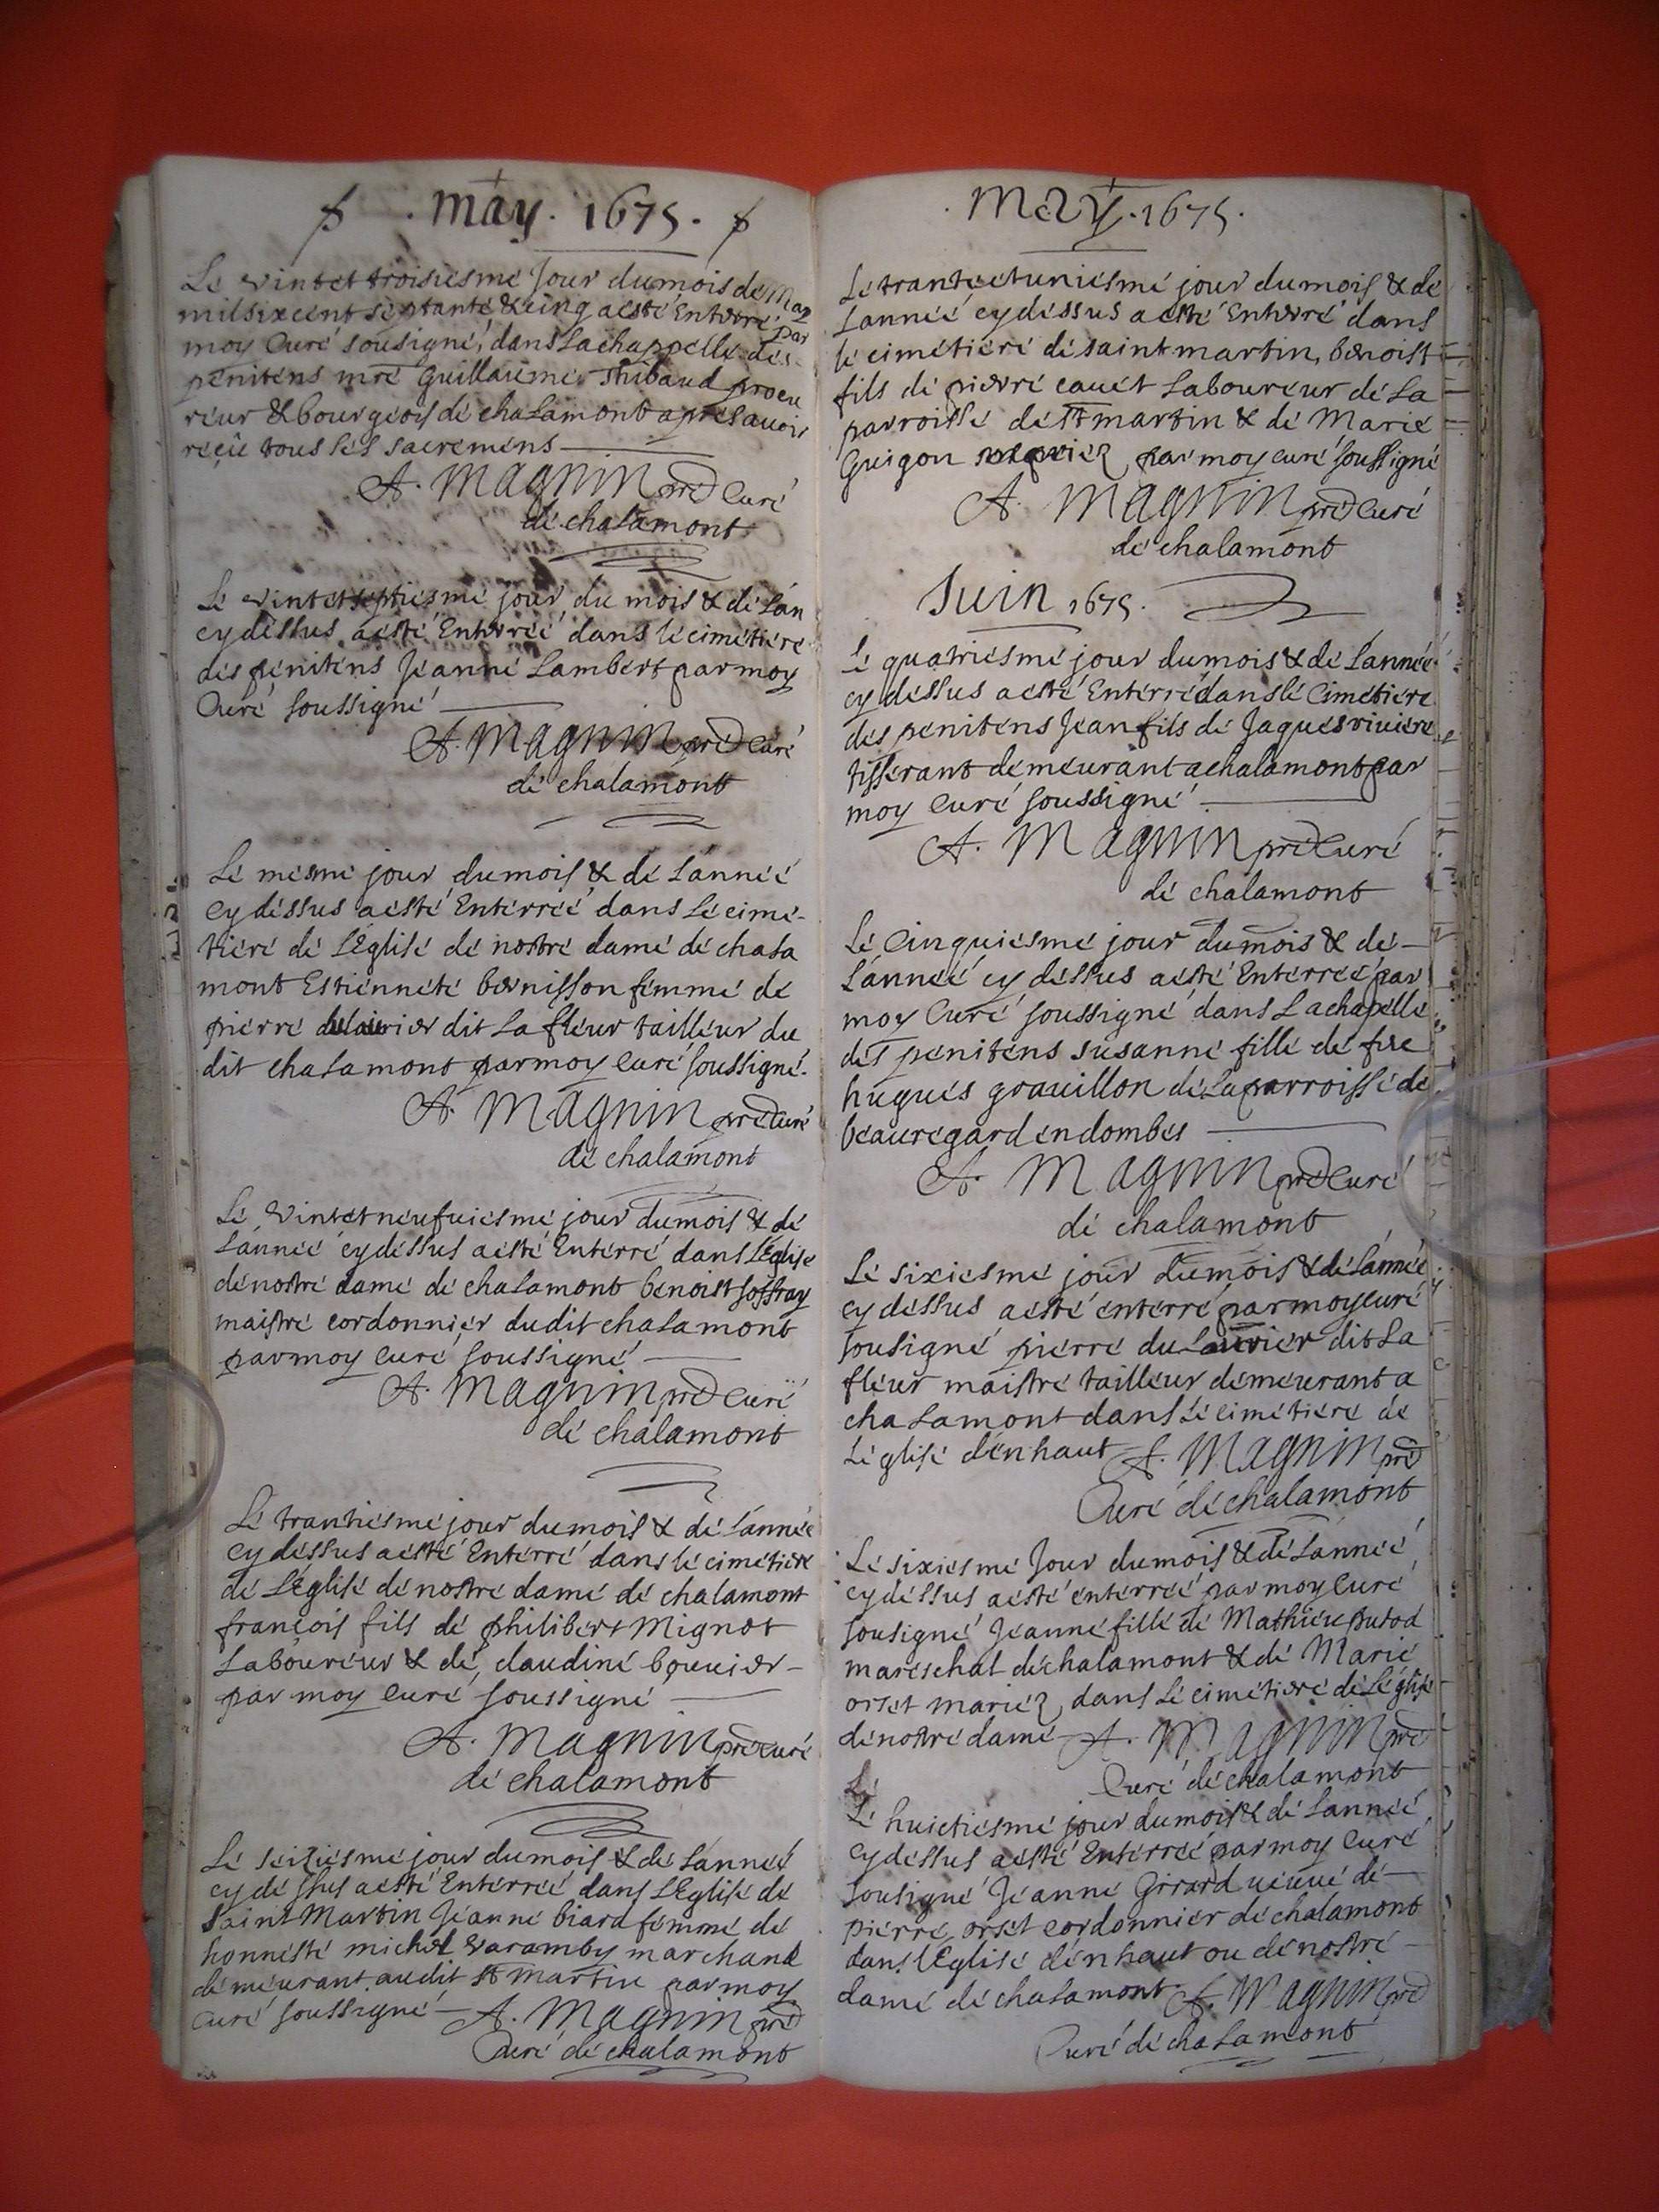 may. 1675.
Le vintet troisiesme Jour du mois de May
mil six cent septante & cinq a esté Enterré par
moy Curé sousigné, dans La chappelle des
penitens mre Guillaume Thibaud procu
reur & bourgeois de chalamont apres avoir
reçeu tous les sacremens
A. Magnin pre Curé
de chalamont
Le vintet septiesme jour du mois & de L'an
cy dessus a esté Enterrée dans le cimetiere
des penitens Jeanne Lambert par moy
Curé soussigné
A. Magnin pre Curé
de chalamont
Le mesme jour du mois & de L'année
cy dessus a esté Enterrée dans Le cime-
tiere de L'Eglise de nostre dame de chala
mont Estiennete bernisson femme de
pierre dulaurier dit La fleur tailleur du
dit chalamont par moy curé soussigné.
A. Magnin pre Curé
de chalamont
Le vintet neufuiesme jour du mois & de
L'année cy dessus a esté Enterré dans L'Eglise
de nostre dame de chalamont benoist soffray
maistre cordonnier dudit chalamont
par moy curé soussigné
A. Magnin pre Curé
de chalamont
Le trantiesme jour du mois & de L'année
cy dessus a esté Enterré dans le cimetiere
de L'Eglise de nostre dame de chalamont
françois fils de philibert Mignot
Laboureur & de claudine bouuier
par moy curé soussigné
A. Magnin pre curé
de chalamont
Le seiziesme jour du mois & de L'année
cy dessus a esté Enterrée dans L'Eglise de
Saint Martin Jeanne biard femme de
honneste michel Varamby marchand
demeurant audit st Martin par moy
curé soussigné A. Magnin pre
Curé de chalamont
MAY. 1675.
Le trante et uniesme jour du mois & de
L'année cy dessus a esté Enterré dans
le cimetiere de saint martin, benoist
fils de pierre cauet Laboureur de La
parroisse de st martin & de Marie
Guigon par moy curé soussigné
A. Magnin pre Curé
de chalamont
Juin 1675.
Le quatriesme jour du mois & de L'année
cy dessus a esté Enterré dans le Cimetiere
des penitens Jean fils de Jaques riuiere
tisserant demeurant a chalamont par
moy Curé soussigné
A. Magnin pre Curé
de chalamont
Le Cinquiesme jour du mois & de
L'année cy dessus a esté Enterrée par
moy Curé soussigné dans La chapelle
des penitens susanne fille de feu
hugues grauillon de La parroisse de
beauregard en dombes
A. Magnin pre Curé
de chalamont
Le sixiesme jour du mois & de L'année
cy dessus a esté enterré par moy curé
sousigné pierre du Laurier dit La
fleur maistre tailleur demeurant a
chalamont dans Le cimetiere de
L'eglise d'enhaut A. Magnin pre
Curé de chalamont
Le sixiesme Jour du mois & de L'année
cy dessus a esté enterrée par moy curé
sousigné Jeanne fille de Mathieu putod
mareschal de chalamont & de Marie
orset mariez dans Le cimetiere de L'eglise
de nostre dame A. Magnin pre
Curé de chalamont
Le
Le huictiesme jour du mois & de L'année
cy dessus a esté Enterrée par moy curé
sousigné Jeanne Girard ueuue de
pierre orset cordonnier de chalamont
dans L'Eglise d'enhaut ou de nostre
dame de chalamont A. Magnin pre
Curé de chalamont